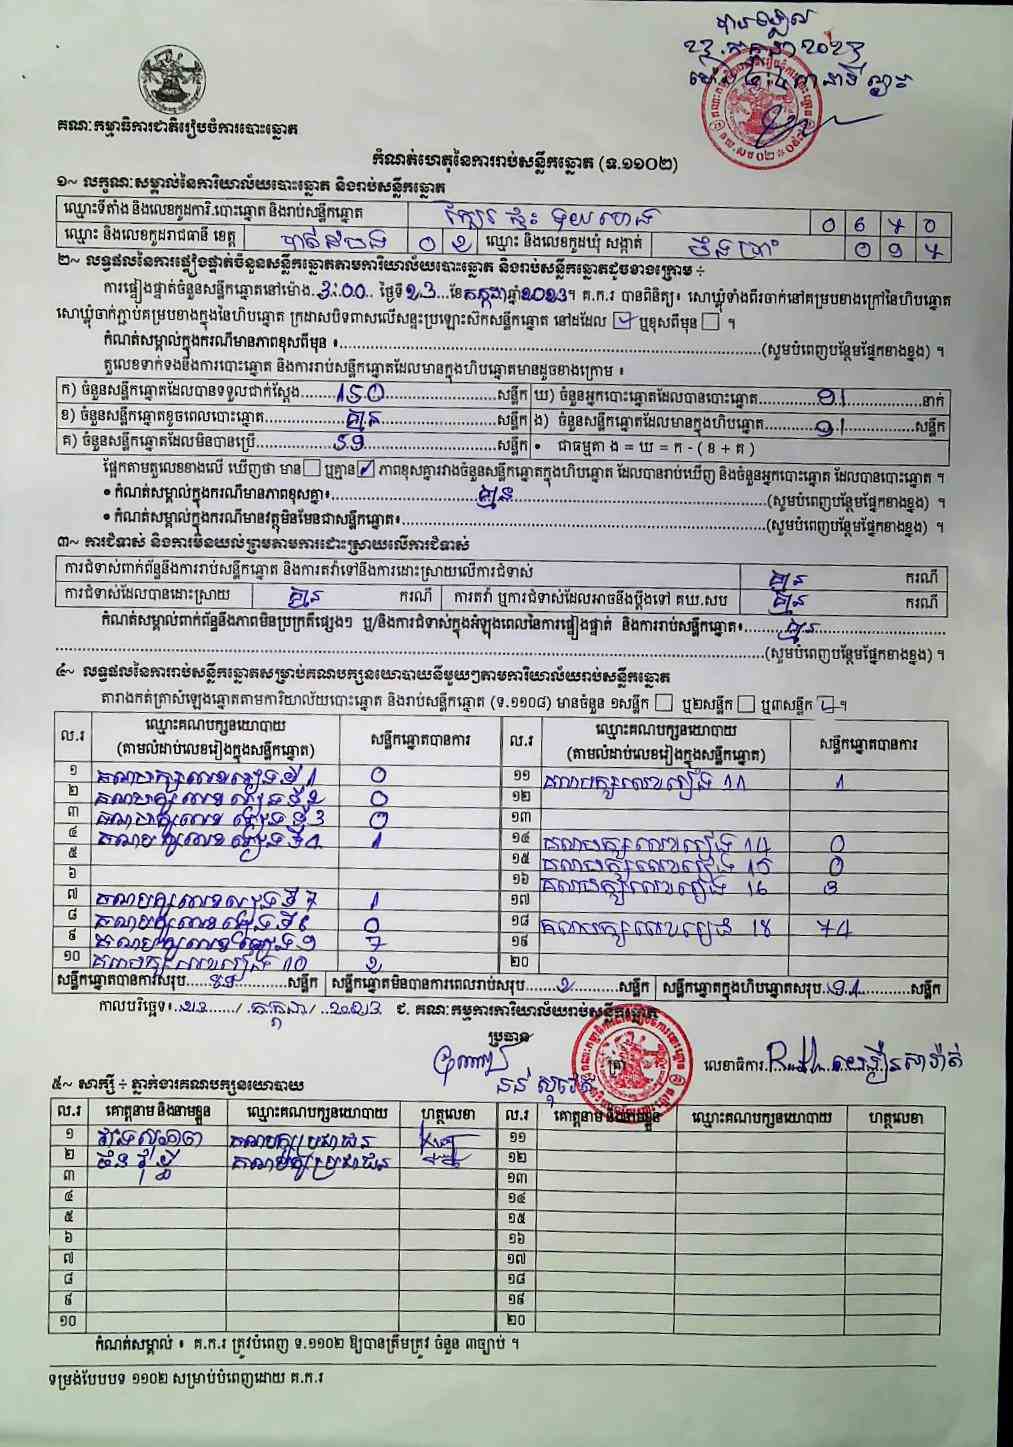 បានឃើញ
គណៈកម្មាធិការជាតិរៀបចំការបោះឆ្នោត
កំណត់ហេតុនៃការរាប់សន្លឹកឆ្នោត (ទ.១១០២)
១~ លក្ខណៈសម្គាល់នៃការិយាល័យបោះឆ្នោត និងរាប់សន្លឹកឆ្នោត
ឈ្មោះទីតាំង និងលេខកូដការិ.បោះឆ្នោត និងរាប់សន្លឹកឆ្នោត 0 6 4 0
ឈ្មោះ និងលេខកូដរាជធានី ខេត្ត បាត់ដំបង 0 2 ឈ្មោះ និងលេខកូដឃុំ សង្កាត់
២~ លទ្ធផលនៃការផ្ទៀងផ្ទាត់ចំនួនសន្លឹកឆ្នោតតាមការិយាល័យបោះឆ្នោត និងរាប់សន្លឹកឆ្នោតដូចខាងក្រោម ÷
ការផ្ទៀងផ្ទាត់ចំនួនសន្លឹកឆ្នោតនៅម៉ោង..3:00.. ថ្ងៃទី 23 ខែ កក្កដា ឆ្នាំ 2023។ គ.ក.រ បានពិនិត្យ៖ សោឃ្មុំទាំងពីរចាក់នៅគម្របខាងក្រៅនៃហិបឆ្នោត
សោឃ្មុំចាក់ភ្ជាប់គម្របខាងក្នុងនៃហិបឆ្នោត ក្រដាសបិទពាសលើសន្ទះប្រឡោះស៊កសន្លឹកឆ្នោត នៅដដែល ☑ ឬខុសពីមុន ☐ ។
កំណត់សម្គាល់ក្នុងករណីមានភាពខុសពីមុន ៖ (សូមបំពេញបន្ថែមផ្នែកខាងខ្នង) ។
តួលេខទាក់ទងនឹងការបោះឆ្នោត និងការរាប់សន្លឹកឆ្នោតដែលមានក្នុងហិបឆ្នោតមានដូចខាងក្រោម ៖
ក) ចំនួនសន្លឹកឆ្នោតដែលបានទទួលជាក់ស្តែង 150 សន្លឹក ឃ) ចំនួនអ្នកបោះឆ្នោតដែលបានបោះឆ្នោត 91 នាក់
ខ) ចំនួនសន្លឹកឆ្នោតខូចពេលបោះឆ្នោត គ្មាន សន្លឹក ង) ចំនួនសន្លឹកឆ្នោតដែលមានក្នុងហិបឆ្នោត 91 សន្លឹក
គ) ចំនួនសន្លឹកឆ្នោតដែលមិនបានប្រើ 59 សន្លឹក • ជាធម្មតា ង = ឃ = ក - ( ខ + គ )
ផ្អែកតាមតួលេខខាងលើ ឃើញថា មាន ☐ ឬគ្មាន ☑ ភាពខុសគ្នារវាងចំនួនសន្លឹកឆ្នោតក្នុងហិបឆ្នោត ដែលបានរាប់ឃើញ និងចំនួនអ្នកបោះឆ្នោត ដែលបានបោះឆ្នោត ។
• កំណត់សម្គាល់ក្នុងករណីមានភាពខុសគ្នា៖ គ្មាន (សូមបំពេញបន្ថែមផ្នែកខាងខ្នង) ។
• កំណត់សម្គាល់ក្នុងករណីមានវត្ថុមិនមែនជាសន្លឹកឆ្នោត៖ (សូមបំពេញបន្ថែមផ្នែកខាងខ្នង) ។
៣~ ការជំទាស់ និងការមិនយល់ព្រមតាមការដោះស្រាយលើការជំទាស់
ការជំទាស់ពាក់ព័ន្ធនឹងការរាប់សន្លឹកឆ្នោត និងការតវ៉ាទៅនឹងការដោះស្រាយលើការជំទាស់ គ្មាន ករណី
ការជំទាស់ដែលបានដោះស្រាយ គ្មាន ករណី ការតវ៉ា ឬការជំទាស់ដែលអាចនឹងប្តឹងទៅ គឃ.សប គ្មាន ករណី
កំណត់សម្គាល់ពាក់ព័ន្ធនឹងភាពមិនប្រក្រតីផ្សេងៗ ឬ/និងការជំទាស់ក្នុងអំឡុងពេលនៃការផ្ទៀងផ្ទាត់ និងការរាប់សន្លឹកឆ្នោត៖ គ្មាន
(សូមបំពេញបន្ថែមផ្នែកខាងខ្នង) ។
៤~ លទ្ធផលនៃការរាប់សន្លឹកឆ្នោតសម្រាប់គណបក្សនយោបាយនីមួយៗតាមការិយាល័យរាប់សន្លឹកឆ្នោត
តារាងកត់ត្រាសំឡេងឆ្នោតតាមការិយាល័យបោះឆ្នោត និងរាប់សន្លឹកឆ្នោត (ទ.១១០៨) មានចំនួន ១សន្លឹក ☐ ឬ២សន្លឹក ☐ ឬ៣សន្លឹក ☑ ។
ល.រ ឈ្មោះគណបក្សនយោបាយ (តាមលំដាប់លេខរៀងក្នុងសន្លឹកឆ្នោត) សន្លឹកឆ្នោតបានការ ល.រ ឈ្មោះគណបក្សនយោបាយ (តាមលំដាប់លេខរៀងក្នុងសន្លឹកឆ្នោត) សន្លឹកឆ្នោតបានការ
១ គណបក្សលេខរៀងទី 1 0 ១១ គណបក្សលេខរៀង 11 1
២ គណបក្សលេខរៀងទី 2 0 ១២
៣ គណបក្សលេខរៀងទី 3 0 ១៣
៤ គណបក្សលេខរៀងទី 4 1 ១៤ គណបក្សលេខរៀង 14 0
៥ ១៥ គណបក្សលេខរៀង 15 0
៦ ១៦ គណបក្សលេខរៀង 16 3
៧ គណបក្សលេខរៀងទី 7 1 ១៧
៨ គណបក្សលេខរៀងទី 8 0 ១៨ គណបក្សលេខរៀង 18 74
៩ គណបក្សលេខរៀងទី 9 7 ១៩
១០ គណបក្សលេខរៀង 10 2 ២០
សន្លឹកឆ្នោតបានការសរុប 89 សន្លឹក សន្លឹកឆ្នោតមិនបានការពេលរាប់សរុប 2 សន្លឹក សន្លឹកឆ្នោតក្នុងហិបឆ្នោតសរុប 91 សន្លឹក
កាលបរិច្ឆេទ៖ 23 / កក្កដា / 2023 ជ. គណៈកម្មការការិយាល័យរាប់សន្លឹកឆ្នោត
ប្រធាន
លេខាធិការ
៥~ សាក្សី ÷ ភ្នាក់ងារគណបក្សនយោបាយ
ល.រ គោត្តនាម និងនាមខ្លួន ឈ្មោះគណបក្សនយោបាយ ហត្ថលេខា ល.រ គោត្តនាម និងនាមខ្លួន ឈ្មោះគណបក្សនយោបាយ ហត្ថលេខា
១ គណបក្សប្រជាជន ១១
២ គណបក្សប្រជាជន ១២
៣ ១៣
៤ ១៤
៥ ១៥
៦ ១៦
៧ ១៧
៨ ១៨
៩ ១៩
១០ ២០
កំណត់សម្គាល់ ៖ គ.ក.រ ត្រូវបំពេញ ទ.១១០២ ឱ្យបានត្រឹមត្រូវ ចំនួន ៣ច្បាប់ ។
ទម្រង់បែបបទ ១១០២ សម្រាប់បំពេញដោយ គ.ក.រ